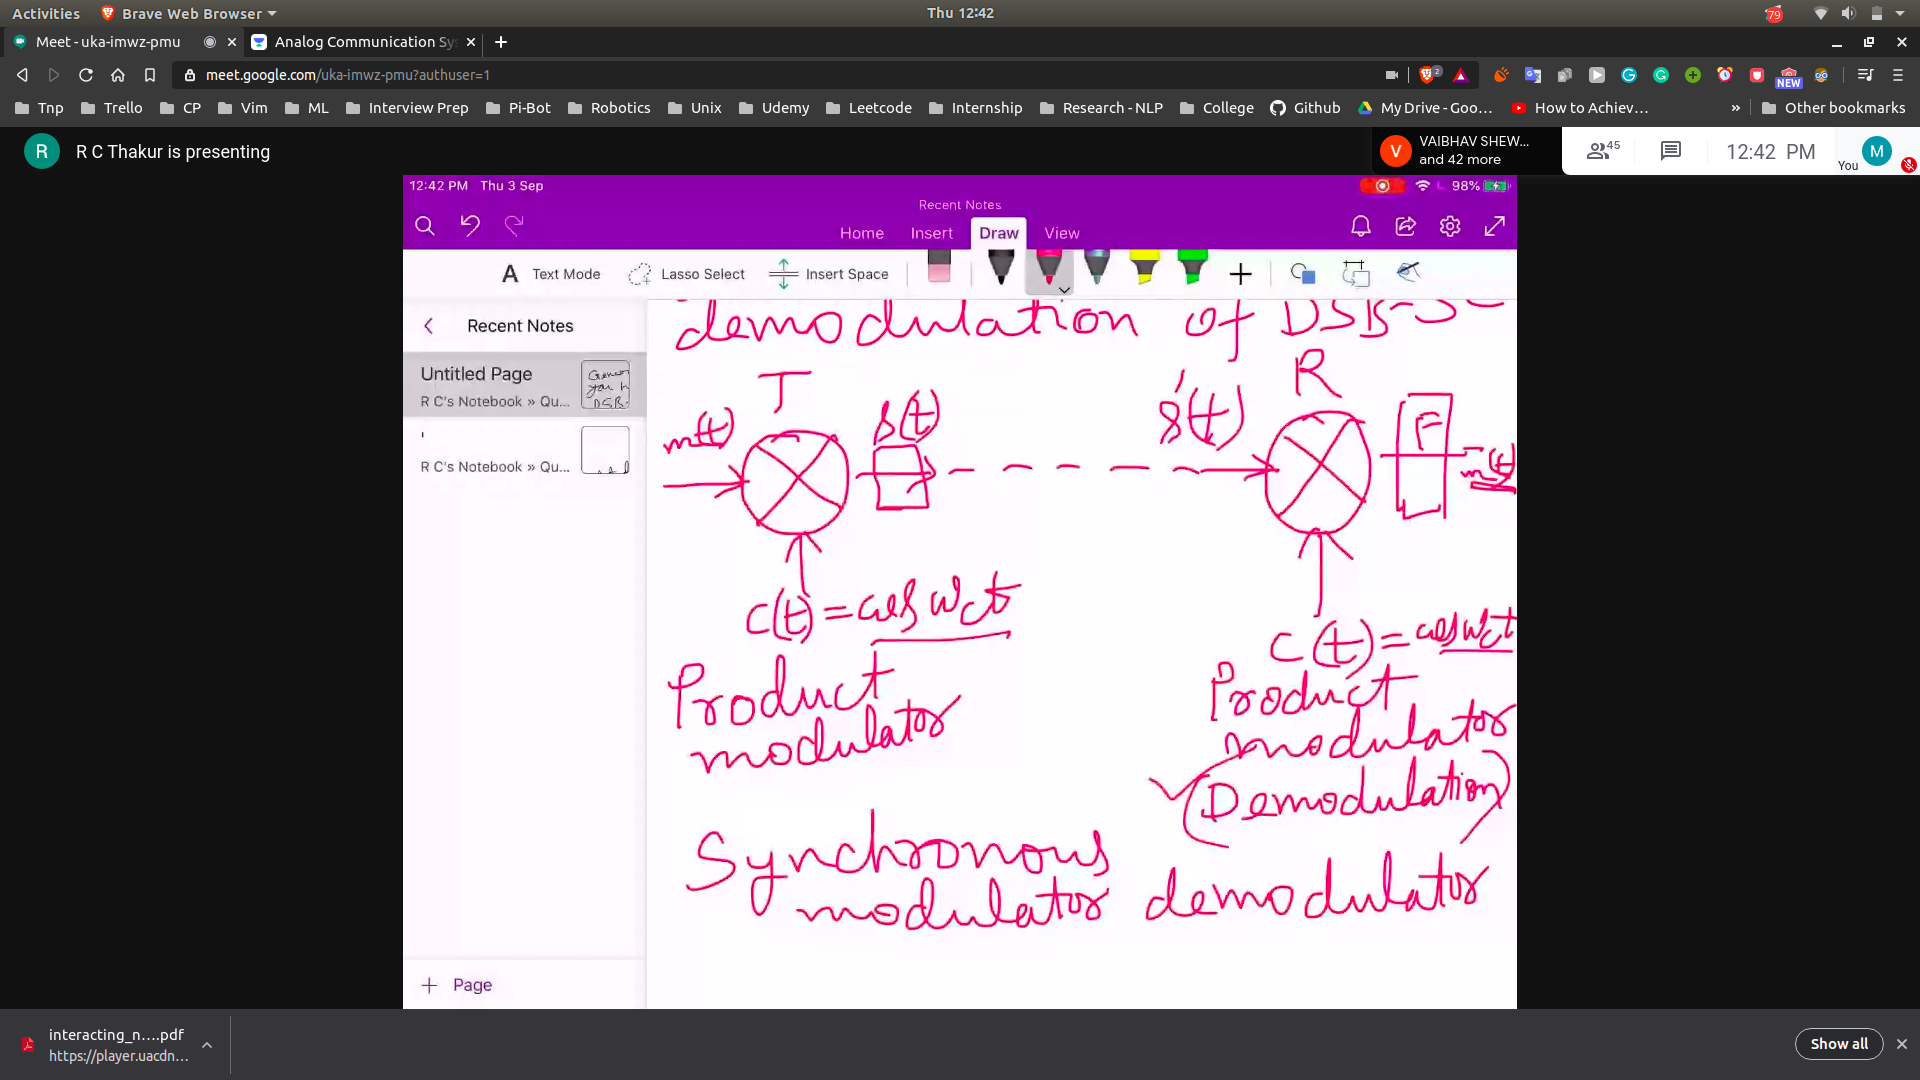 Activities Brave Web Browser Thu 12:42 79
Meet - uka-imwz-pmu Analog Communication Sy
meet.google.com/uka-imwz-pmu?authuser=1 2 NEW
Tnp Trello CP Vim ML Interview Prep Pi-Bot Robotics Unix Udemy Leetcode Internship Research - NLP College Github My Drive - Goo… How to Achiev… » Other bookmarks
R R C Thakur is presenting V VAIBHAV SHEW... and 42 more 45 12:42 PM You M
12:42 PM Thu 3 Sep 98%
Recent Notes
Home Insert Draw View
A Text Mode Lasso Select Insert Space
Recent Notes
Untitled Page
R C's Notebook » Qu...
R C's Notebook » Qu...
Page
demodulation of DSB-S
T R
m(t) s(t) s'(t) F m(t)
c(t) = cos wct
c(t) = cos wct
Product
modulator
Product
modulator
(Demodulation)
Synchronous
modulator demodulator
interacting_n….pdf
https://player.uacdn…
Show all